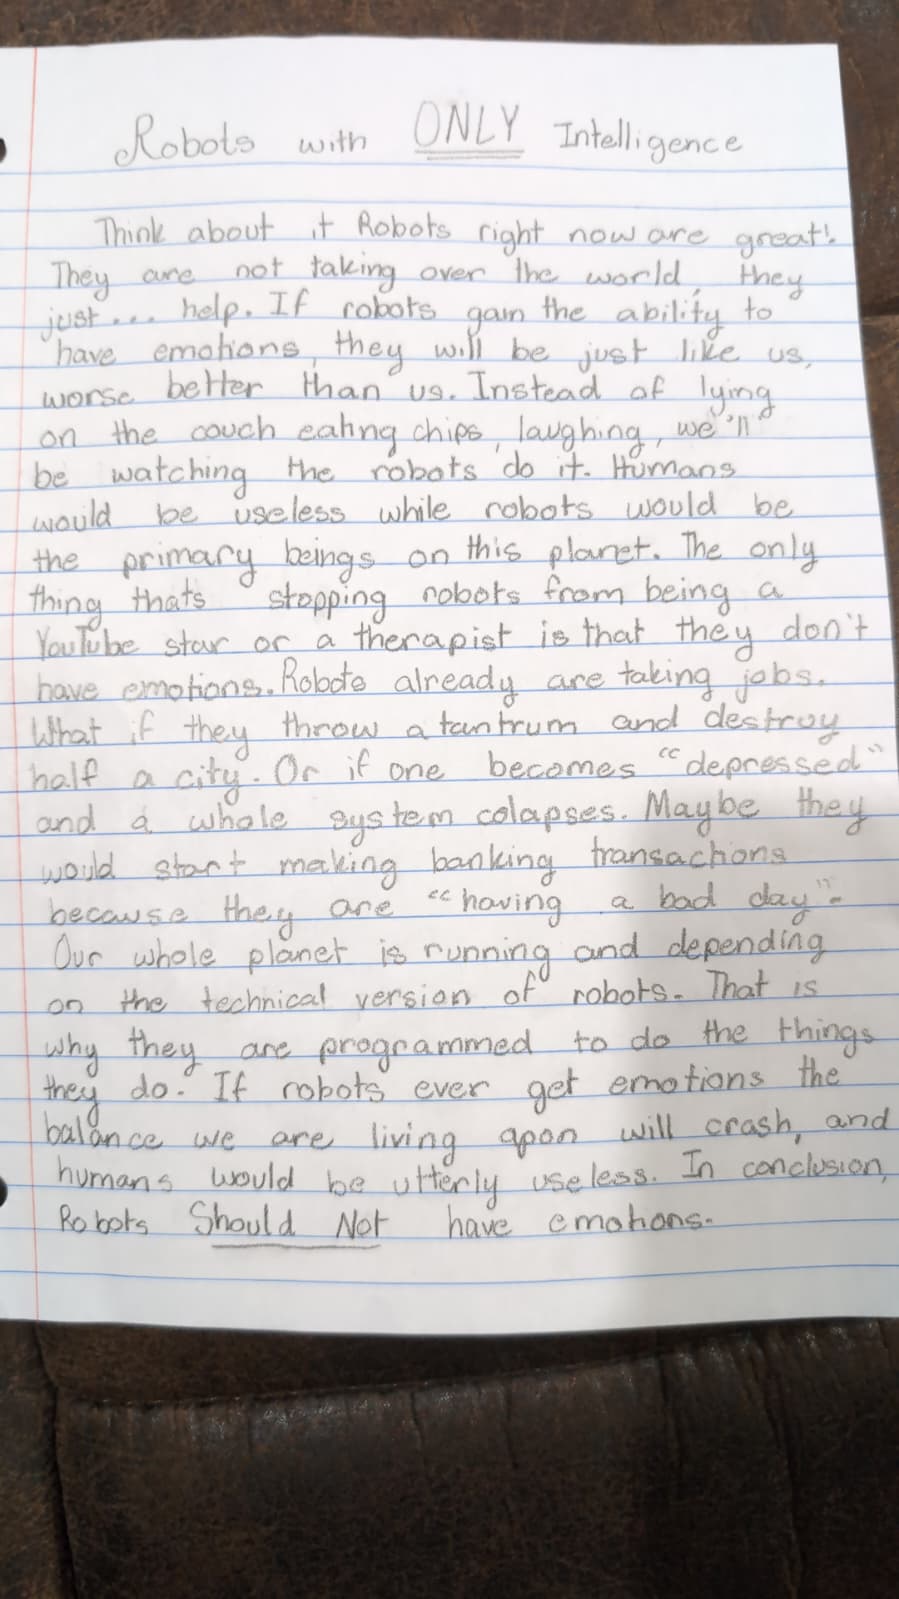 Robots with ONLY Intelligence
Think about it Robots right now are great!
They are not taking over the world, they
just... help. If robots gain the ability to
have emotions, they will be just like us,
worse better than us. Instead of lying
on the couch eating chips, laughing, we'll
be watching the robots do it. Humans
would be useless while robots would be
the primary beings on this planet. The only
thing thats stopping robots from being a
YouTube star or a therapist is that they don't
have emotions. Robots already are taking jobs.
What if they throw a tantrum and destroy
half a city. Or if one becomes "depressed"
and a whole system colapses. Maybe they
would start making banking transactions
because they are "having a bad day".
Our whole planet is running and depending
on the technical version of robots. That is
why they are programmed to do the things
they do. If robots ever get emotions the
balance we are living apon will crash, and
humans would be utterly useless. In conclusion,
Robots Should Not have emotions.